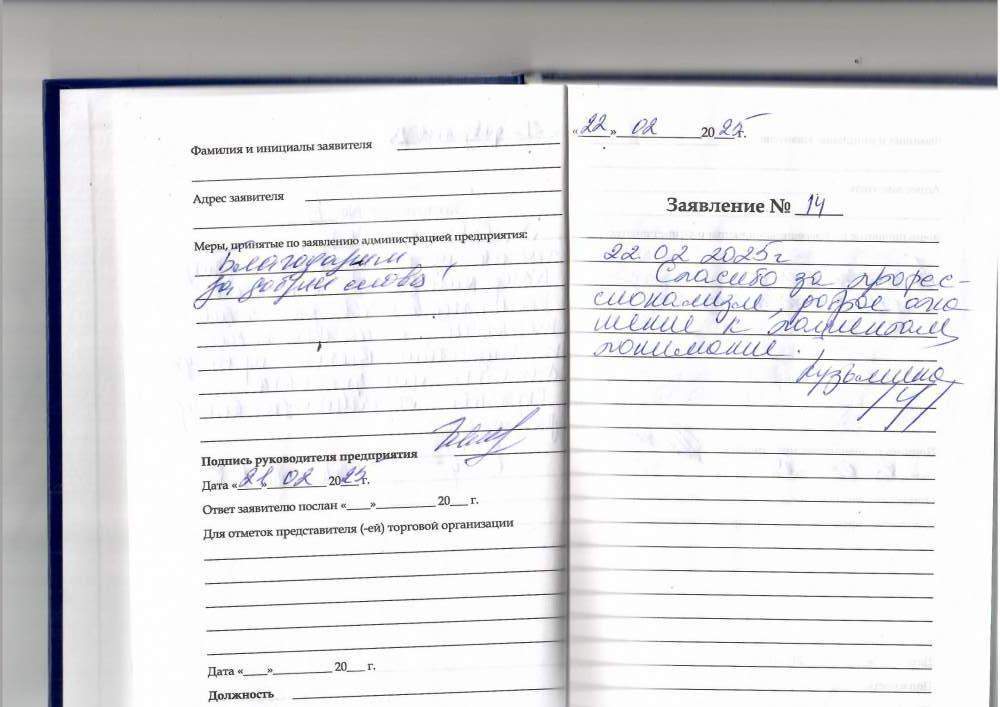 Фамилия и инициалы заявителя
Адрес заявителя
Меры, принятые по заявлению администрацией предприятия:
Благодарим
за добрые слова!
Подпись руководителя предприятия
Дата «28» 02 2025 г.
Ответ заявителю послан «____»__________ 20___ г.
Для отметок представителя (-ей) торговой организации
Дата «____»__________ 20___ г.
Должность
«22» 02 2025г.
Заявление № 14
22.02 2025г
Спасибо за профес-
сионализм, доброе отно
шение к пациентам,
понимание.
Кузьмина